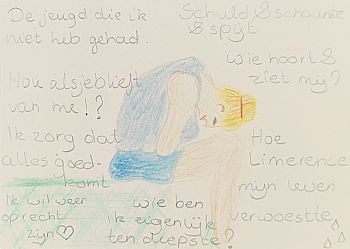 De jeugd die ik
niet heb gehad.
Schuld & schaamte
& spijt
wie hoort &
ziet mij?
Hou alsjeblieft
van me!?
Ik zorg dat
alles goed-
komt
Hoe
Limerence
mijn leven
verwoestte,
Ik wil weer
oprecht
zijn♡
wie ben
ik eigenlijk
ten diepste?